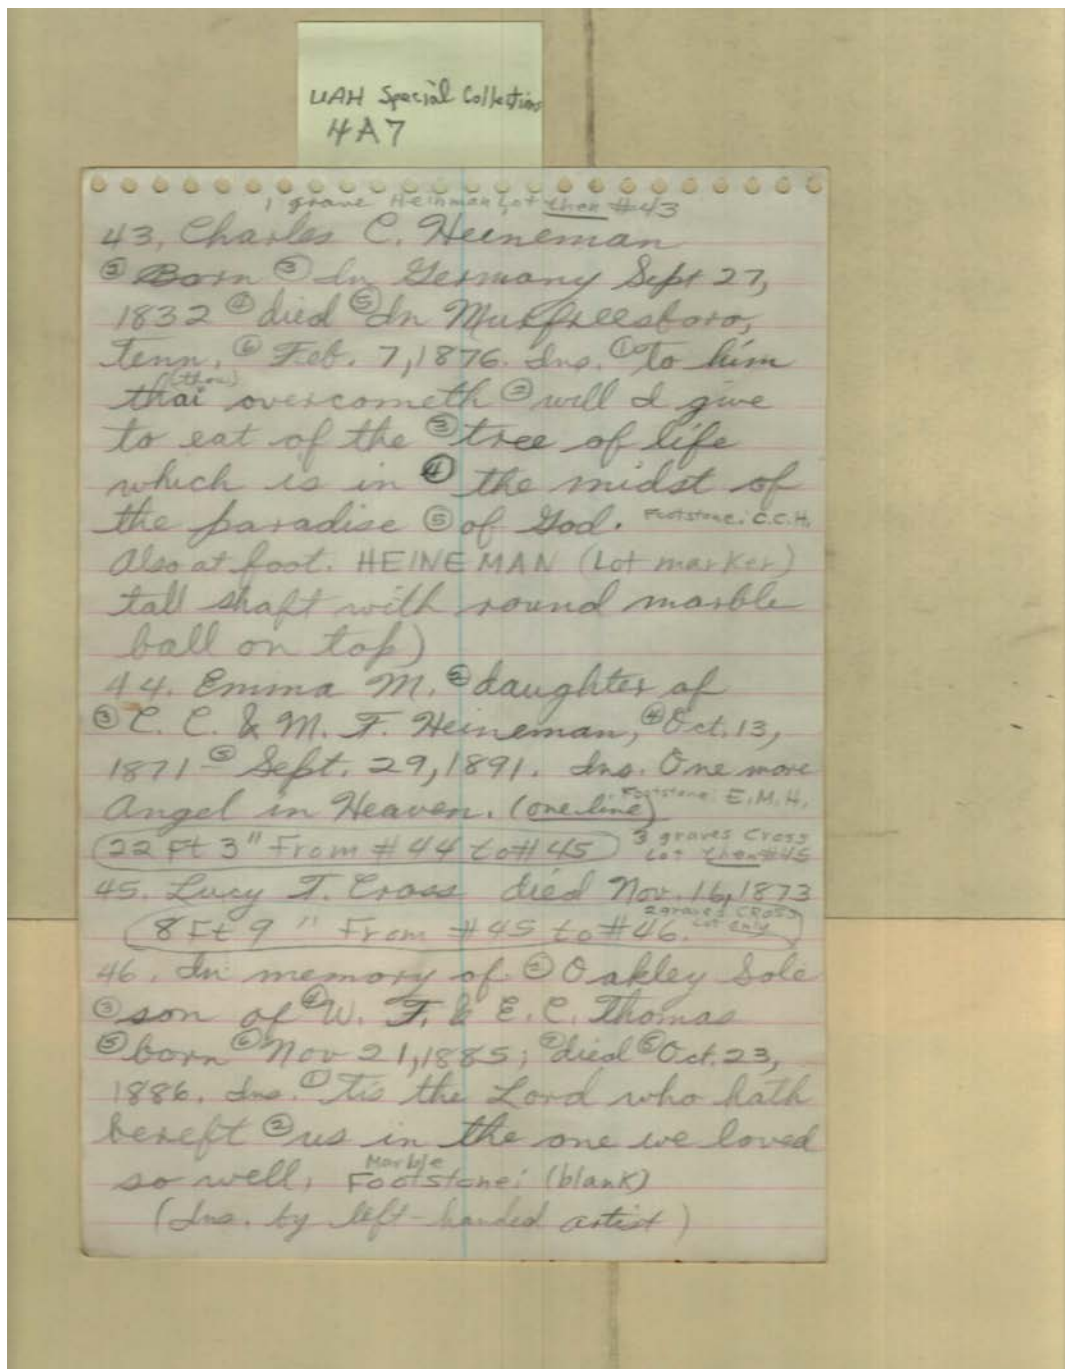 UAH Special Collections
4A7
1 grave Heinman Lot then #43
43. Charles C. Heineman
② Born ③ In Germany Sept 27,
1832 ④ died ⑤ In Murfreesboro,
Tenn. ⑥ Feb. 7, 1876. Ins. ① to him
(thou)
thai overcometh ② will I give
to eat of the ③ tree of life
which is in ④ the midst of
the paradise ⑤ of God. Footstone: C.C.H.
Also at foot. HEINEMAN (Lot marker)
tall shaft with round marble
ball on top)
44. Emma M. ② daughter of
③ C. C. & M. F. Heineman, ④ Oct. 13,
1871 ⑤ Sept. 29, 1891. Ins. One more
Angel in Heaven. (one line) Footstone: E.M.H.
22 Ft 3" From #44 to #45 3 graves Cross
Lot then #45
45. Lucy T. Cross died Nov. 16, 1873
8 Ft 9" From #45 to #46. 2 graves CROSS
Lot Only
46. In memory of ② Oakley Sole
③ son of ④ W. F. & E. C. Thomas
⑤ born ⑥ Nov 21, 1885; ⑦ died ⑧ Oct. 23,
1886. Ins. ① Tis the Lord who hath
bereft ② us in the one we loved
so well, Marble Footstone: (blank)
(Ins. by left-handed artist)